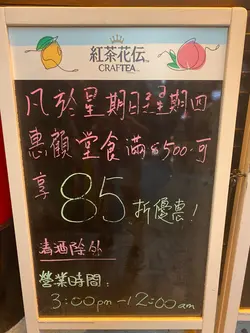 紅茶花伝
CRAFTEA™
凡於星期日至星期四
惠顧堂食滿$500.可
享85折優惠!
清酒除外
營業時間:
3:00pm-12:00am